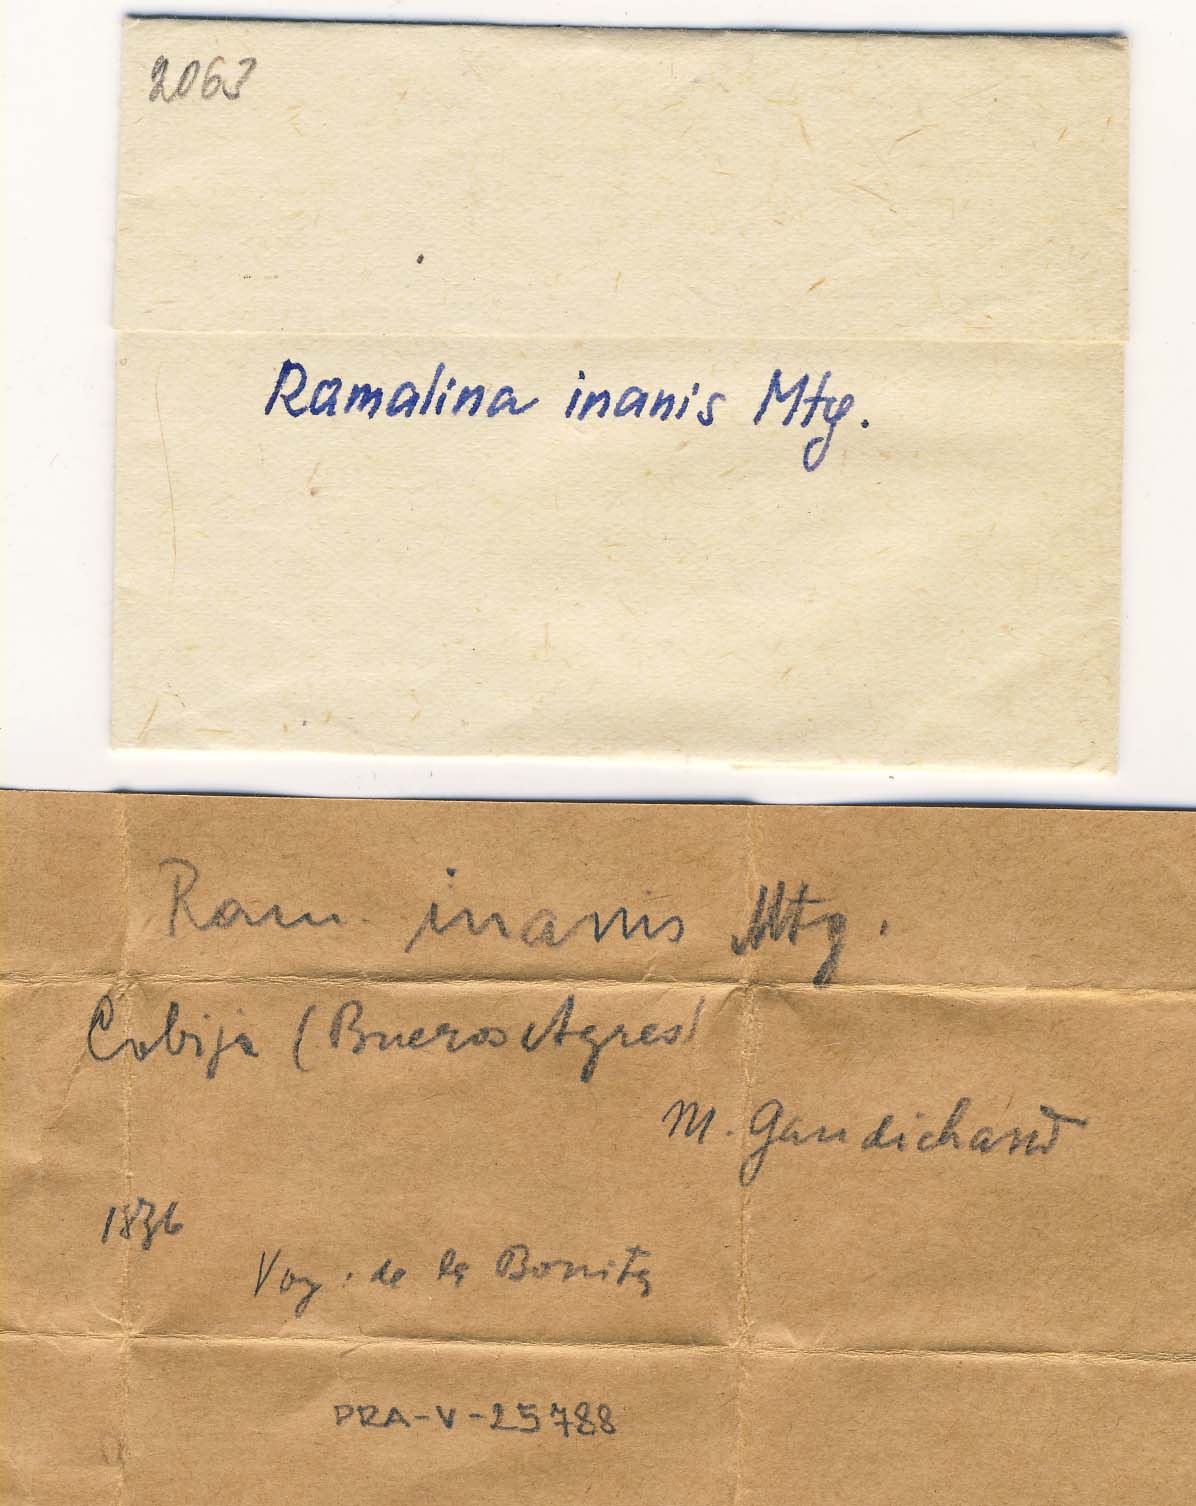 2063
Ramalina inanis Mtg.
Ram. inanis Mtg.
Cobija (Buenos Ayres)
M. Gaudichaud
1836
Voy. de la Bonita
PRA-V-25788